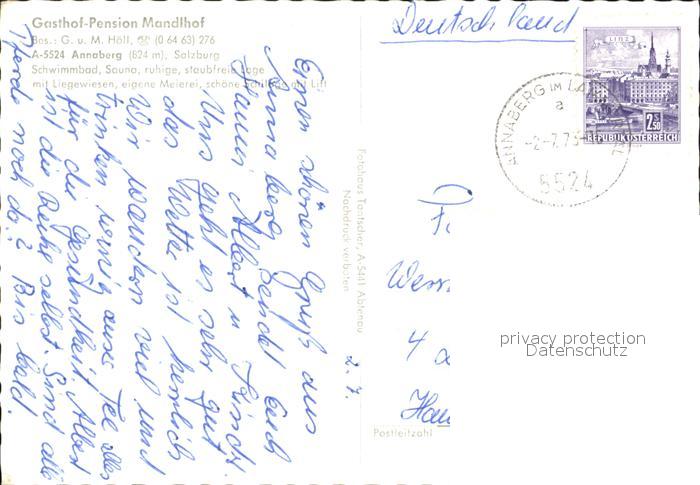 Gasthof-Pension Mandlhof
Bes.: G. u. M. Höll, ☏ (0 64 63) 276
A-5524 Annaberg (824 m), Salzburg
Schwimmbad, Sauna, ruhige, staubfreie Lage
mit Liegewiesen, eigene Meierei, schöne Schilage mit Lift
Deutschland
LINZ
2.50
REPUBLIK ÖSTERREICH
ANNABERG IM
a
-2.-7.7
5524
Einen schönen Gruß aus
Annaberg sendet Euch
Albert u.
Uns geht es sehr gut
das Wetter ist herrlich
Wir wandern viel und
trinken Tee alles
für die Gesundheit. Albert
ist die Ruhe selbst. Sind alle
Pferde noch da? Bis bald.
2.7.
Fotohaus Tontscher, A-5441 Abtenau
Nachdruck verboten
4
Postleitzahl
privacy protection
Datenschutz